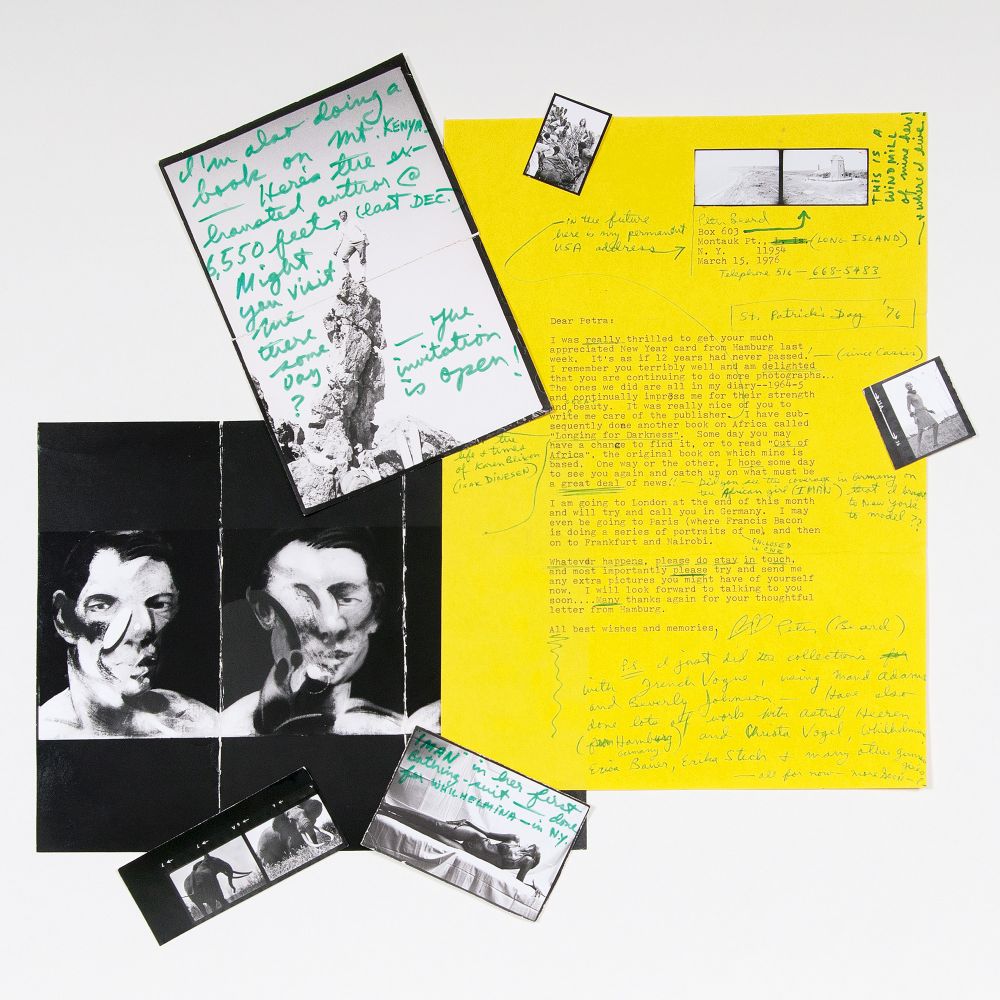 I'm also doing a
book on Mt. KENYA.
— Here's the ex-
hausted author @
6,550 feet (last DEC.)
Might
you visit
me
there
some
day
?
— The
invitation
is open!
THIS IS A
WINDMILL
of mine here
+ where I live!
— in the future
here is my permanent
USA address
Peter Beard
Box 603
Montauk Pt., (LONG ISLAND)
N. Y. 11954
March 15, 1976
Telephone 516 — 668-5483
St. Patrick's Day '76
Dear Petra:
I was really thrilled to get your much
appreciated New Year card from Hamburg last
week. It's as if 12 years had never passed. — (since Cassis)
I remember you terribly well and am delighted
that you are continuing to do more photographs...
The ones we did are all in my diary--1964-5
and continually impress me for their strength
and beauty. It was really nice of you to
write me care of the publisher. I have sub-
sequently done another book on Africa called
"Longing for Darkness". Some day you may
have a chance to find it, or to read "Out of
Africa", the original book on which mine is
based. One way or the other, I hope some day
to see you again and catch up on what must be
a great deal of news!!
the
life + times
of Karen Blixen
(ISAK DINESEN)
— Did you see the coverage in Germany on
the African girl (IMAN) that I brought
to New York
to model ??
I am going to London at the end of this month
and will try and call you in Germany. I may
even be going to Paris (where Francis Bacon
is doing a series of portraits of me), and then
on to Frankfurt and Nairobi.
ENCLOSED
is ONE
Whatever happens, please do stay in touch,
and most importantly please try and send me
any extra pictures you might have of yourself
now. I will look forward to talking to you
soon....Many thanks again for your thoughtful
letter from Hamburg.
All best wishes and memories, Peter (Beard)
P.S. I just did the collections
with French Vogue, using Maud Adams
and Beverly Johnson — Have also
done lots of work with Astrid Heeren
(from Hamburg) and Christa Vogel, Whilhelmina
Germany
Erica Bauer, Erika Stech + many other German
girls
— all for now — more soon —
IMAN in her first
Bathing-suit — done
for WHILHELMINA — in N.Y.